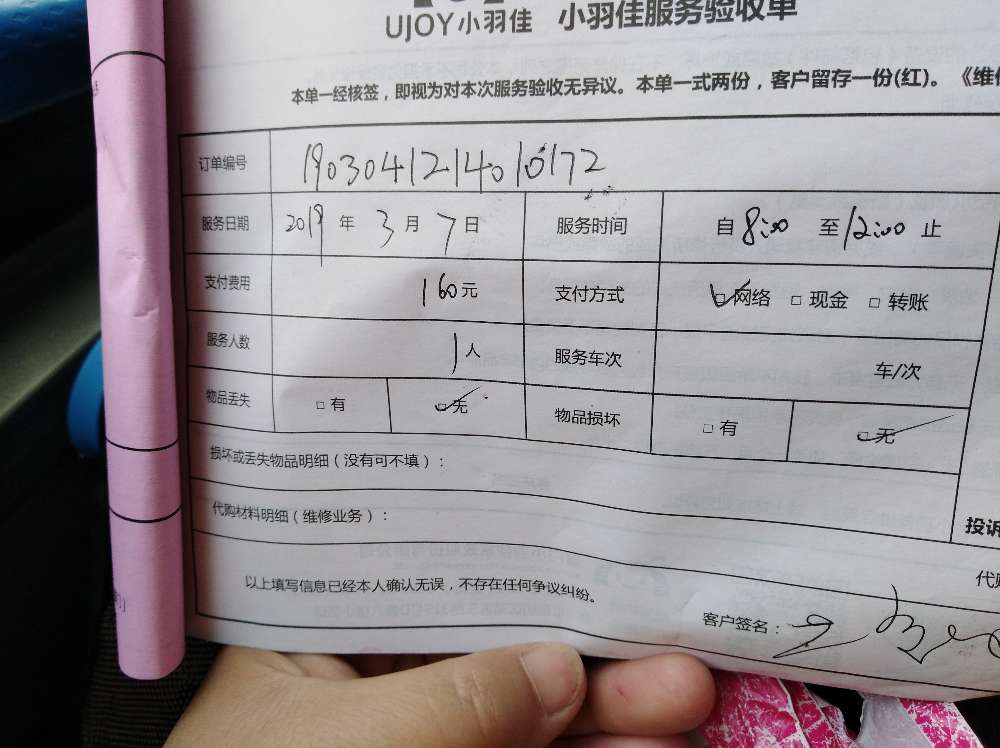 UJOY小羽佳 小羽佳服务验收单
本单一经核签，即视为对本次服务验收无异议。本单一式两份，客户留存一份(红)。《维修
订单编号 190304121401017​2
服务日期 2019年3月7日 服务时间 自8:00至12:00止
支付费用 160元 支付方式 ☑网络 □现金 □转账
服务人数 1人 服务车次 车/次
物品丢失 □有 ☑无 物品损坏 □有 ☑无
损坏或丢失物品明细（没有可不填）：
代购材料明细（维修业务）：
投诉
代购
以上填写信息已经本人确认无误，不存在任何争议纠纷。
客户签名：